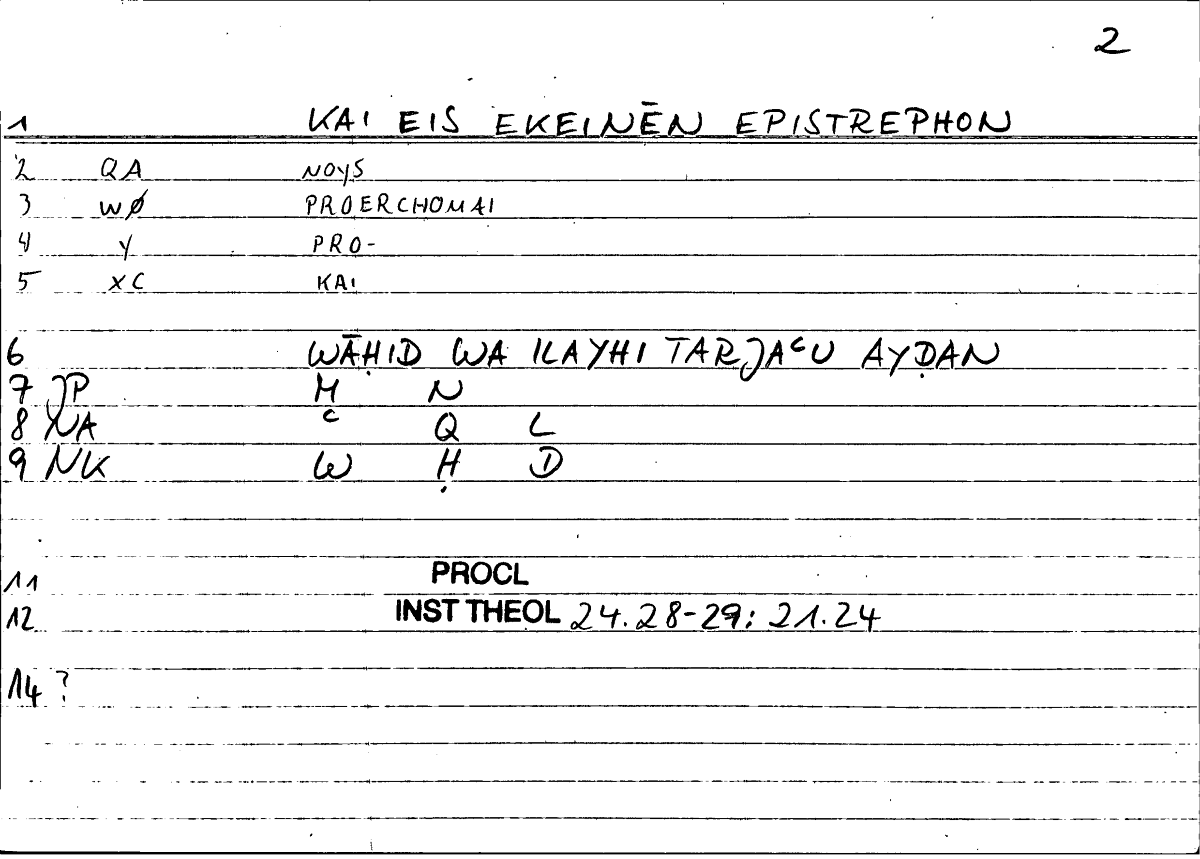 2
1 KAI EIS EKEINĒN EPISTREPHON
2 QA NOYS
3 WØ PROERCHOMAI
4 Y PRO-
5 XC KAI
6 WĀḤID WA ILAYHI TARJAᶜU AYḌAN
7 JP M N
8 NA ᶜ Q L
9 NK W Ḥ D
11 PROCL
12 INST THEOL 24.28-29: 21.24
14 ?